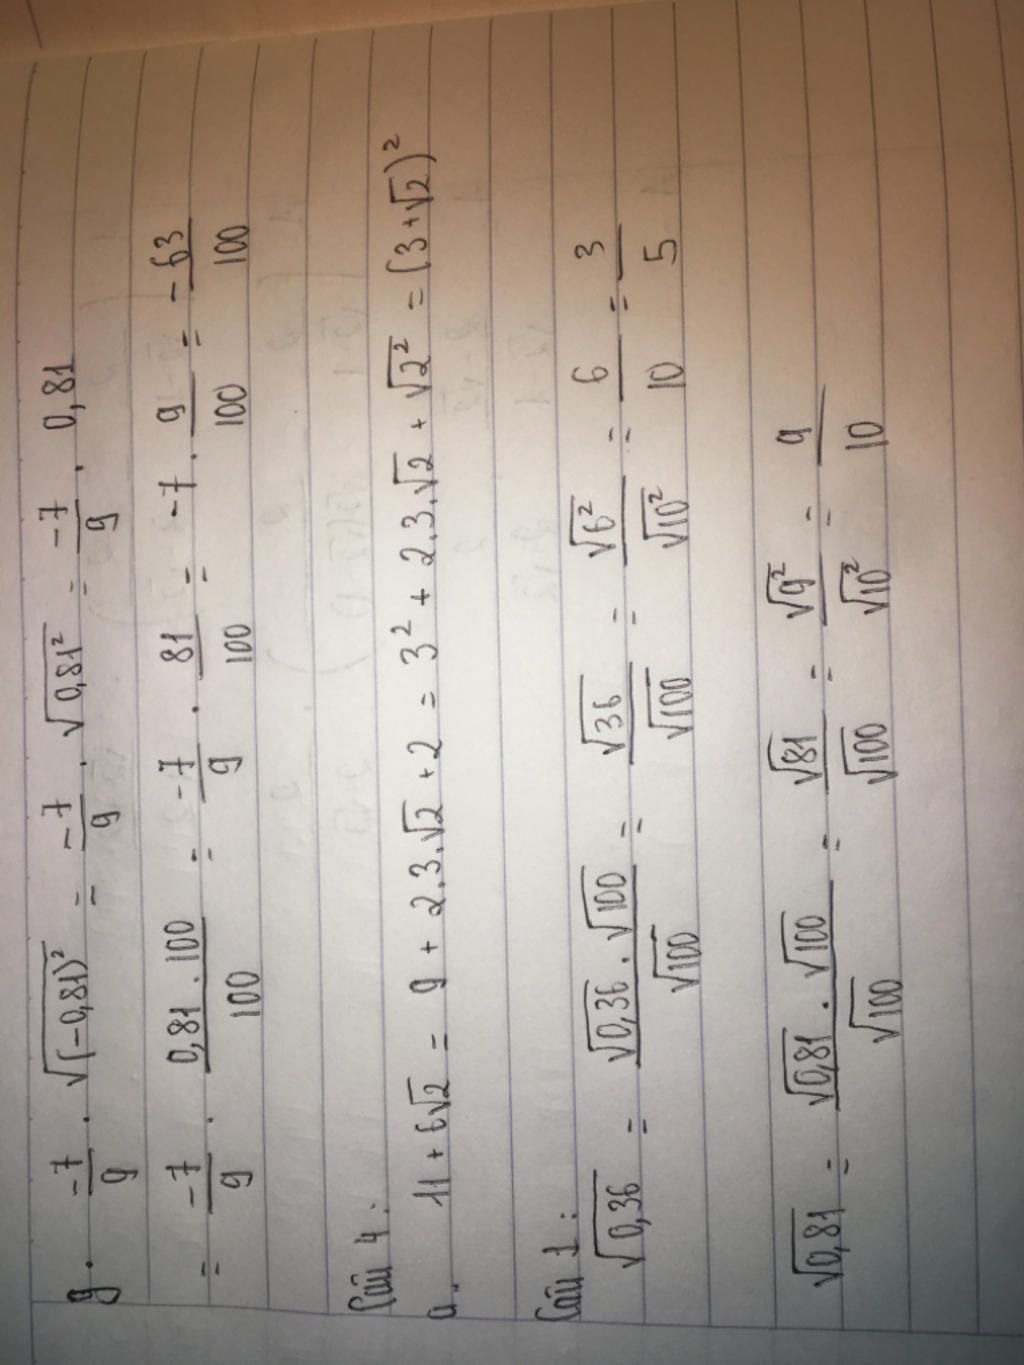 g. -7/9 . √(-0,81)² = -7/9 . √0,81² = -7/9 . 0,81
= -7/9 . 0,81 . 100/100 = -7/9 . 81/100 = -7 . 9/100 = -63/100
Câu 4 :
a. 11 + 6√2 = 9 + 2.3.√2 + 2 = 3² + 2.3.√2 + √2² = (3+√2)²
Câu 1 :
√0,36 = √0,36 . √100/√100 = √36/√100 = √6²/√10² = 6/10 = 3/5
√0,81 = √0,81 . √100/√100 = √81/√100 = √9²/√10² = 9/10